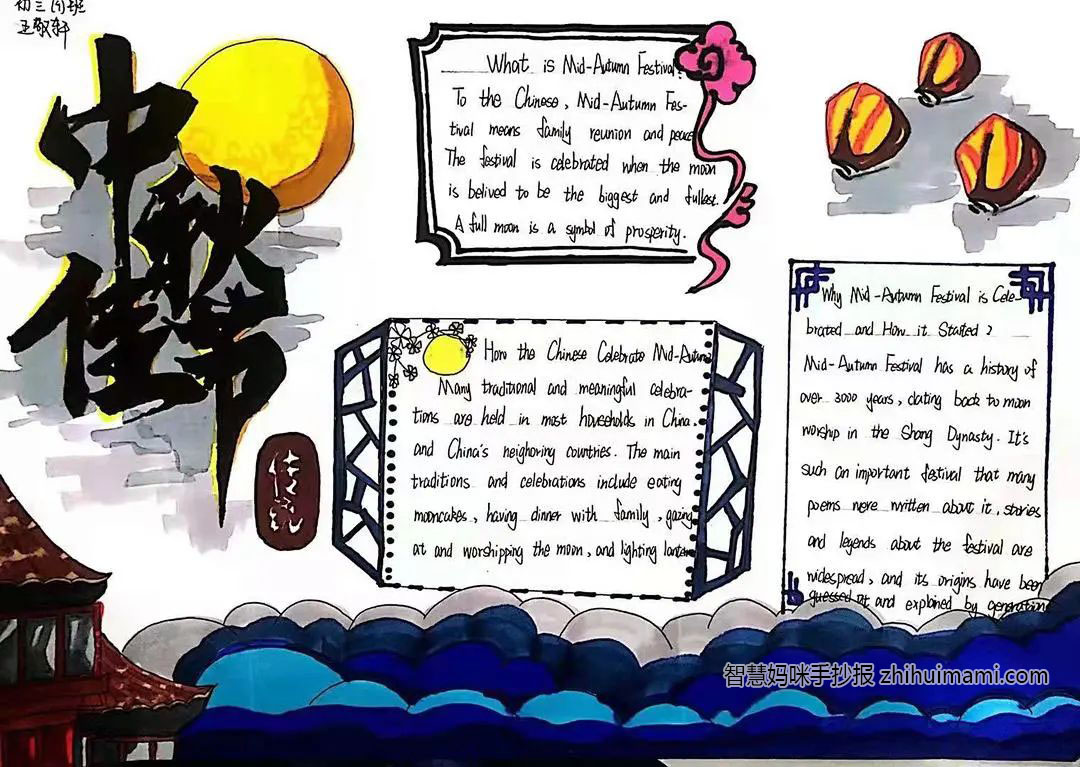 王敬轩
中秋佳节
传统
What is Mid-Autumn Festival?
To the Chinese, Mid-Autumn Fes-
tival means family reunion and peace
The festival is celebrated when the moon
is belived to be the biggest and fullest.
A full moon is a symbol of prosperity.
How the Chinese Celebrate Mid-Autumn
Many traditional and meaningful celebra-
tions are held in most households in China.
and China's neighoring countries. The main
traditions and celebrations include eating
mooncakes, having dinner with family, gazing
at and worshipping the moon, and lighting lantern
Why Mid-Autumn Festival is Cele-
brated and How it Started?
Mid-Autumn Festival has a history of
over 3000 years, dating back to moon
worship in the Shang Dynasty. It's
such an important festival that many
poems were written about it, stories
and legends about the festival are
widespread, and its origins have been
guessed at and explained by generation
智慧妈咪手抄报 zhihuimami.com